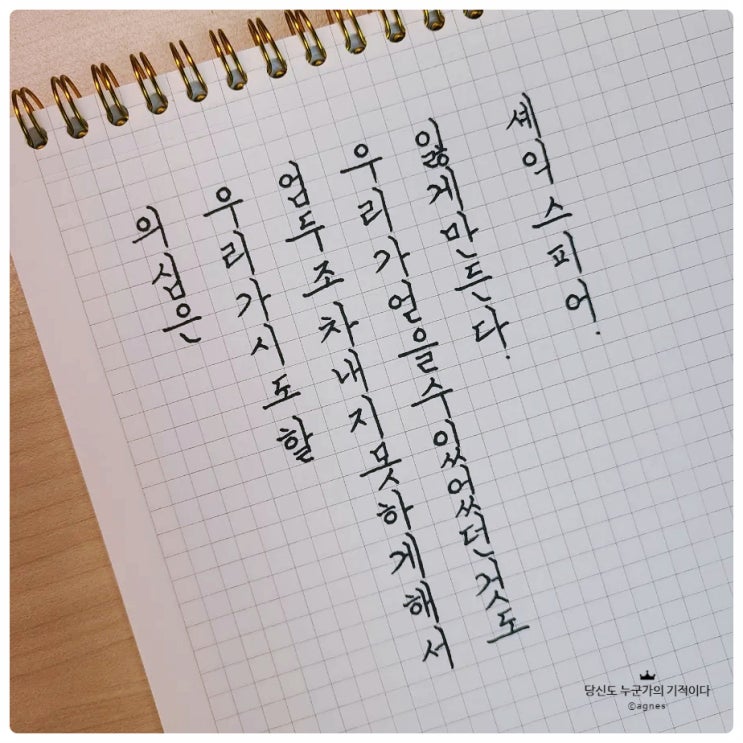 의심은
우리가시도할
엄두조차내지못하게해서
우리가얻을수있었던것도
잃게만든다.
셰익스피어.
당신도 누군가의 기적이다
©agnes